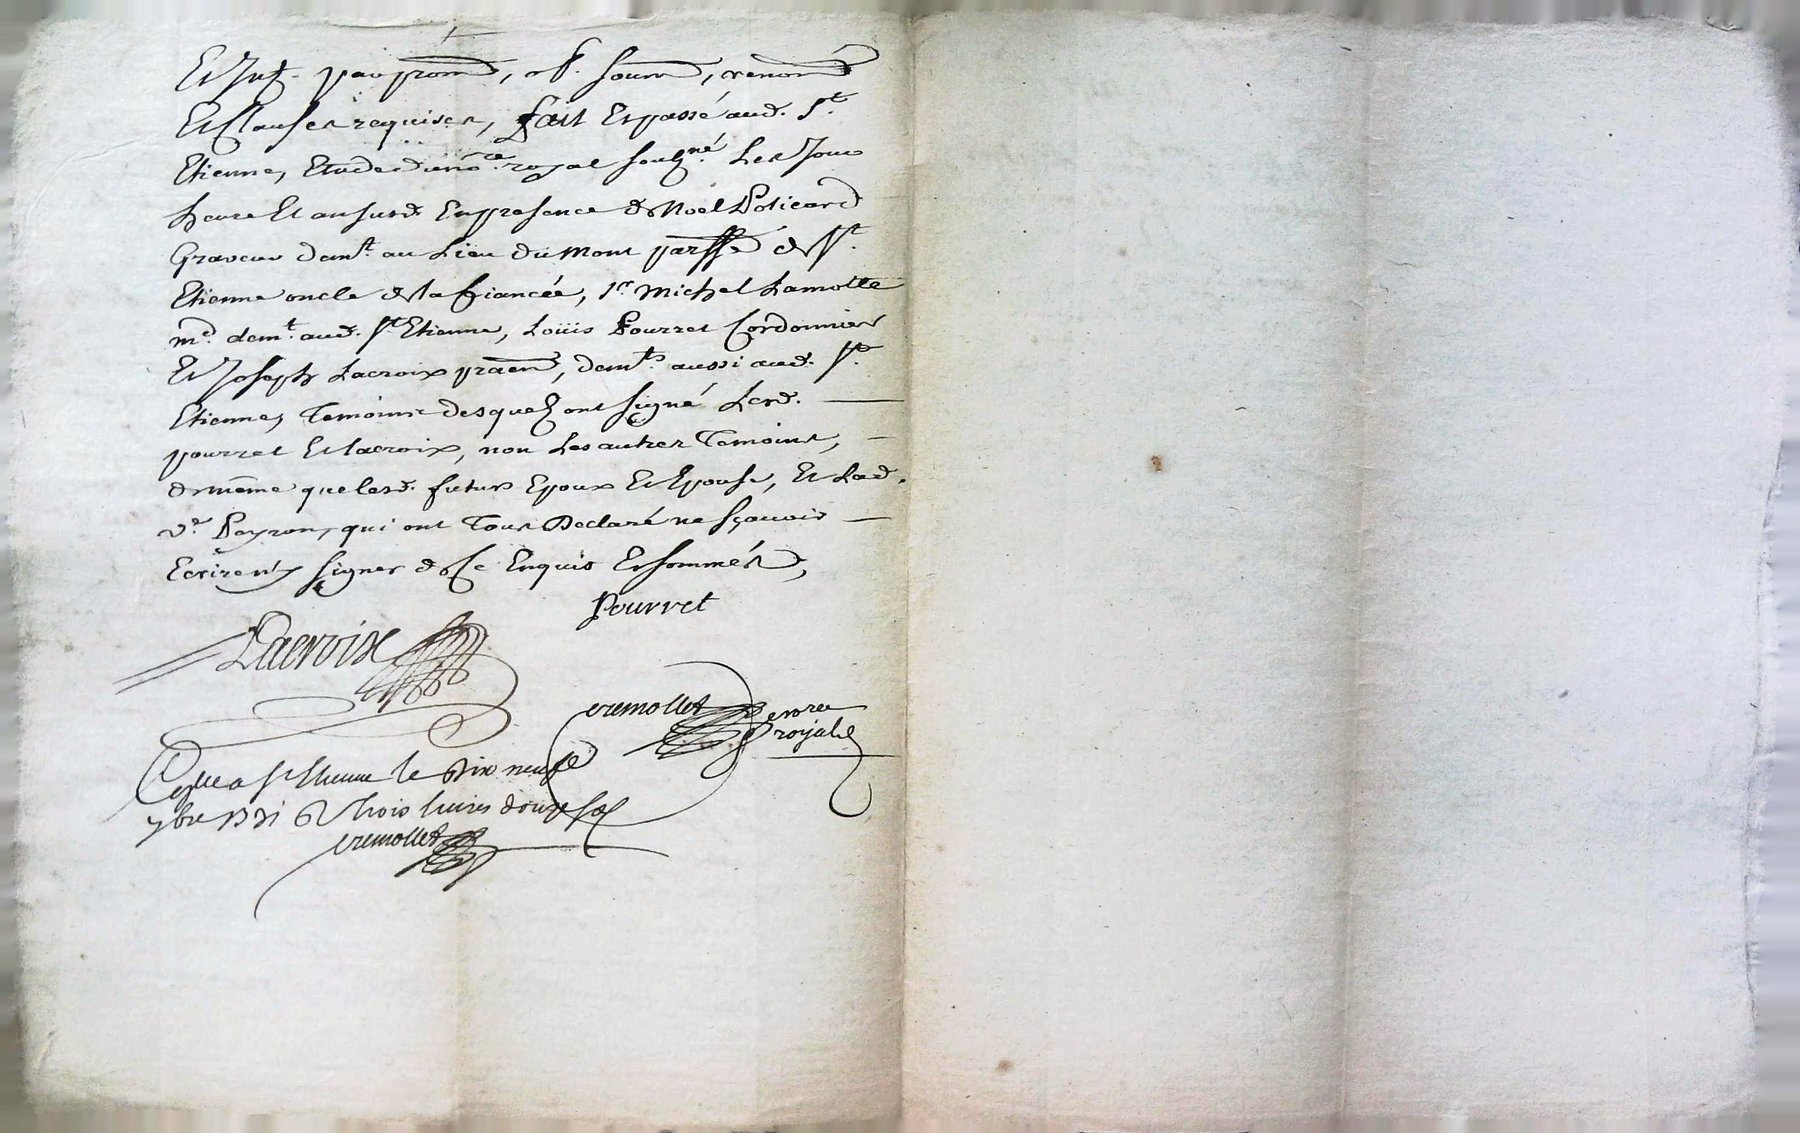 Et Int. par prom, obl. soum, renom
Et Clauses requises, fait Et passé aud. St.
Etienne, Etude du no.re royal soubs.né Les Jour
heure Et an susd. En presence de Noel
Graveur demt. au Lieu du mont parsse de St.
Etienne oncle de la fiancée, sr. Michel Lamotte
md. demt. aud. St. Etienne, Loüis Pourret Cordonnier
Et Joseph Lacroix praen, demts. aussi aud. St.
Etienne, Temoins desquels ont signé Lesd.
pourret Et lacroix, non Les autres Temoins,
de même que lesd. futurs Epoux Et Epouse, Et Lad.
ve. Peyron, qui ont Tous Declaré ne sçavoir
Ecrire ny signer de Ce Enquis Et sommés,
Pourret
Lacroix
cremollet
no.re
royal
à St Etienne le Dix neuf
trois livres douze sols
cremollet